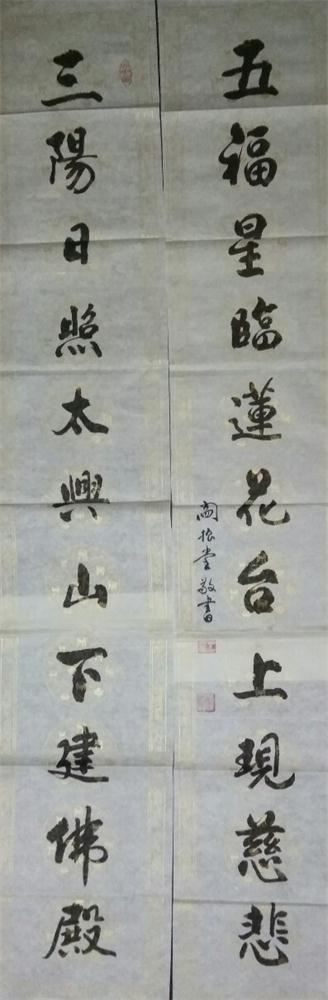 五福星臨蓮花台上現慈悲
振堂敬書
三陽日照太興山下建佛殿